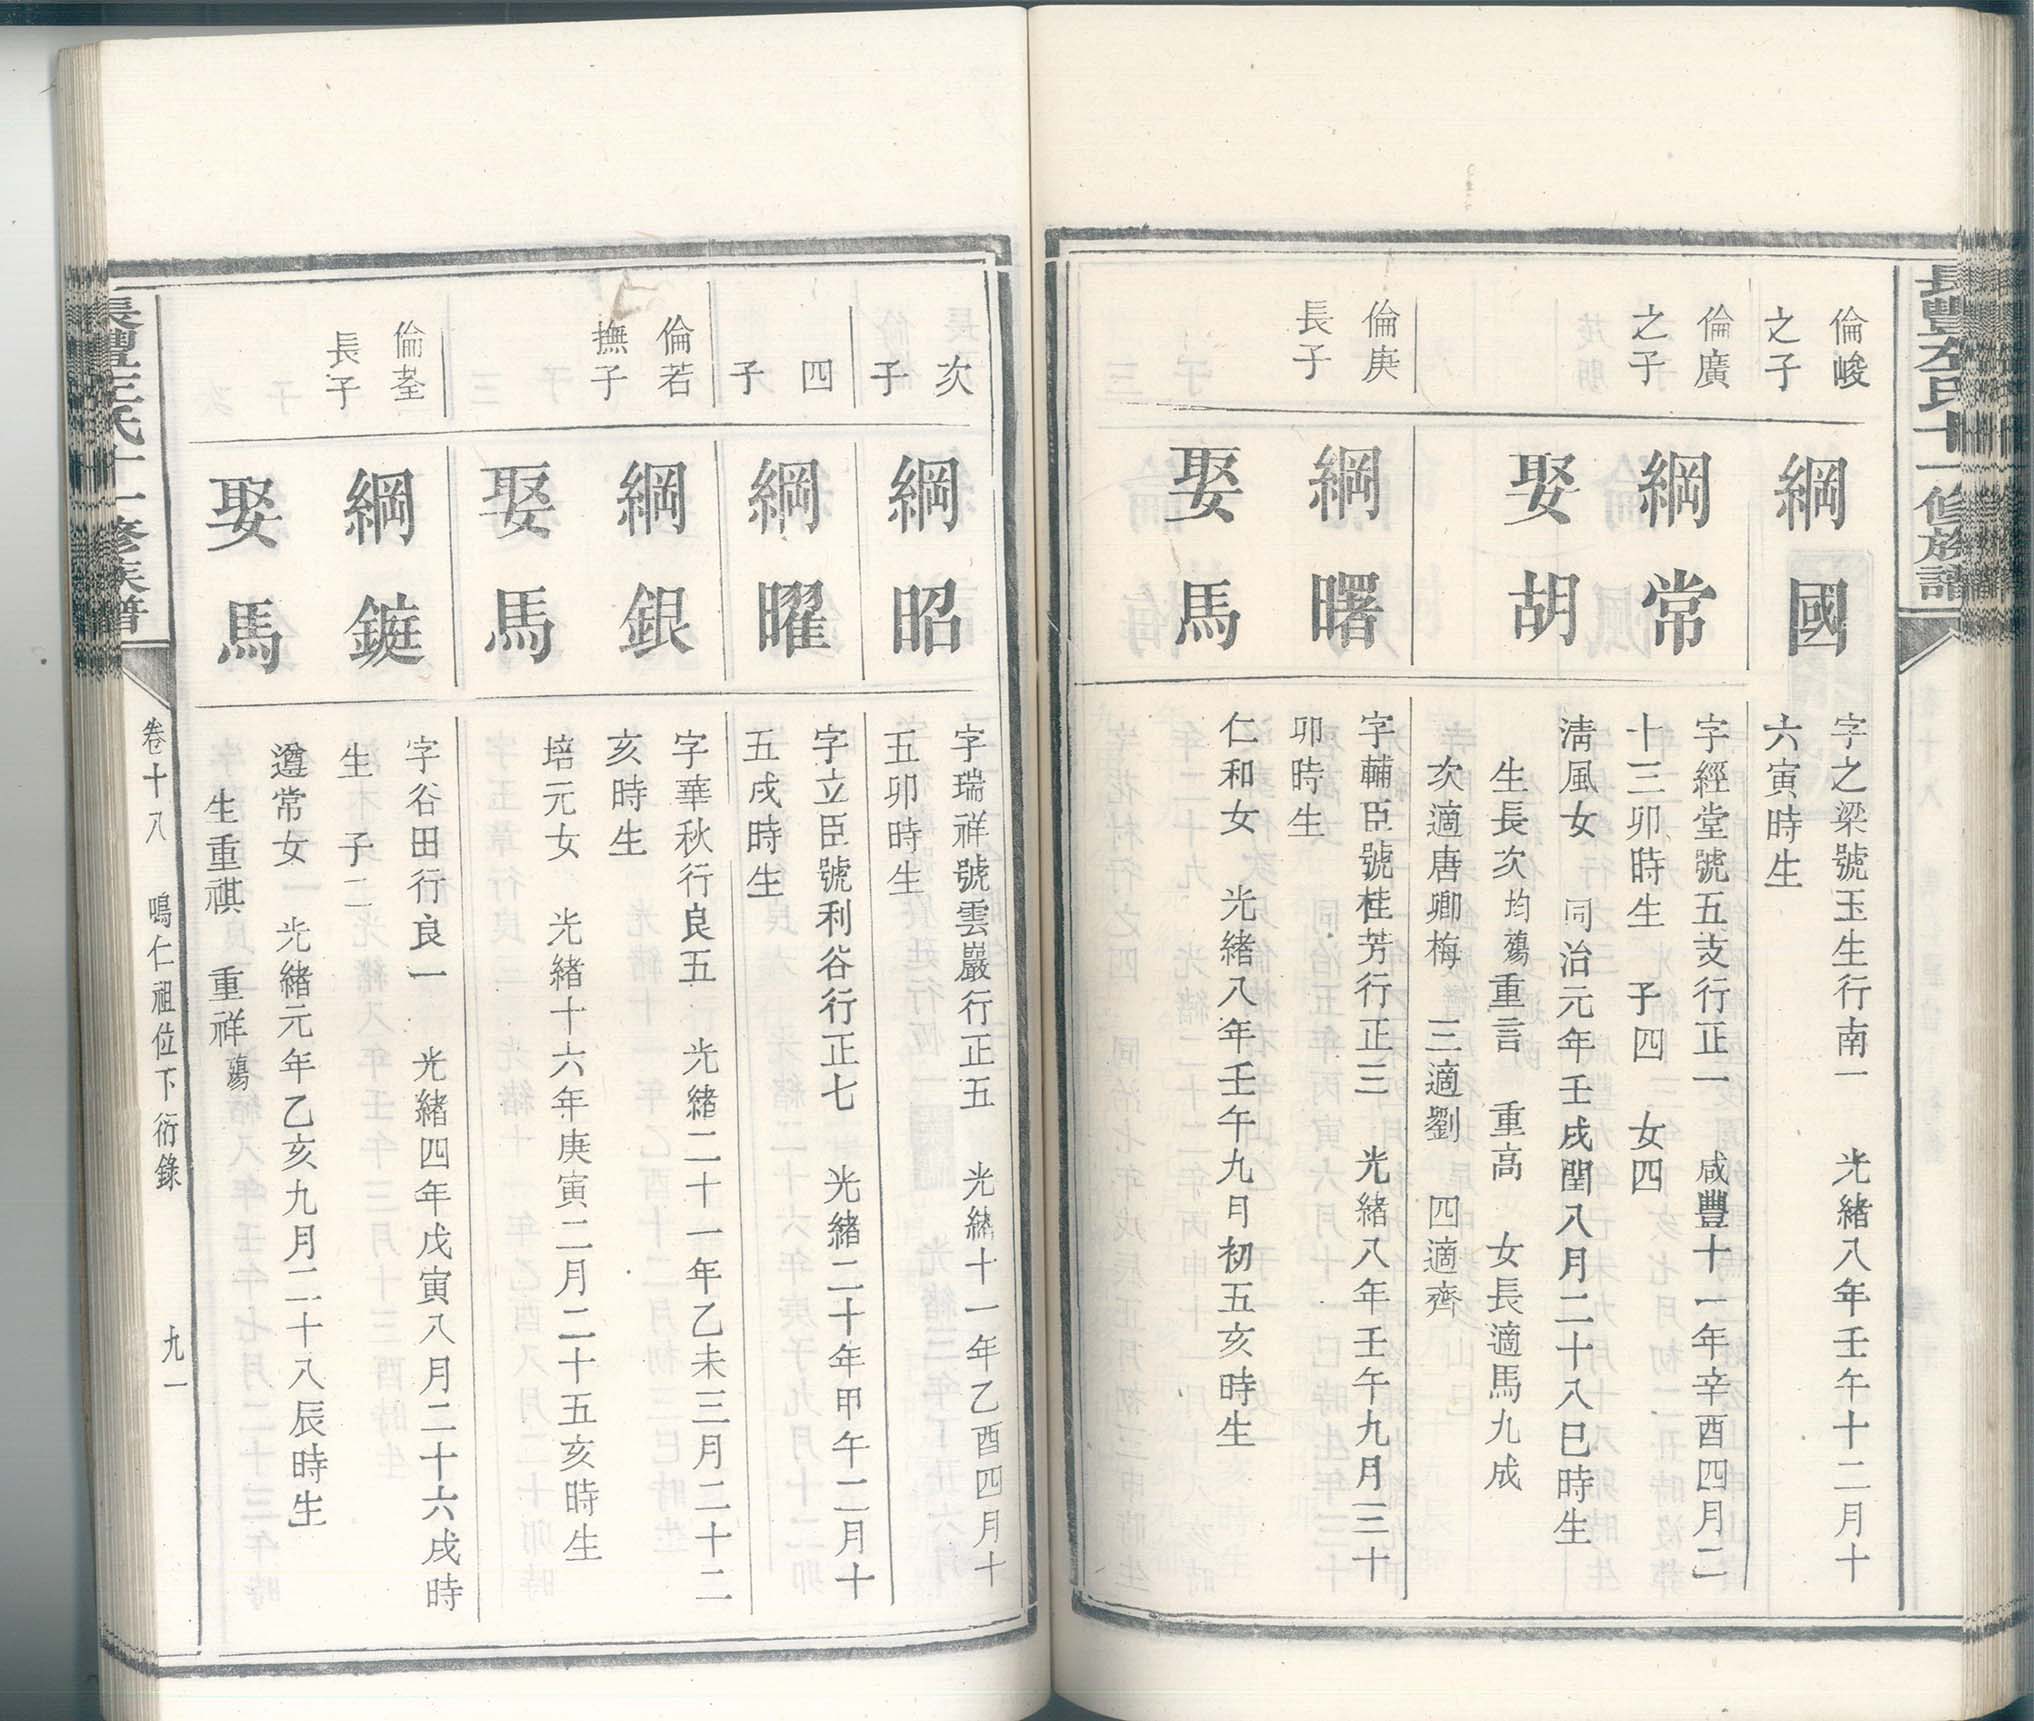 長豐左氏十一修族譜
倫峻
之子
綱國
字之梁號玉生行南一　光緒八年壬午十二月十
六寅時生
倫廣
之子
綱常
娶胡
字經堂號五支行正一　咸豐十一年辛酉四月二
十三卯時生　子四　女四
淸風女　同治元年壬戌閏八月二十八巳時生
生長次均殤重言　重高　女長適馬九成
次適唐卿梅　三適劉　四適齊
倫庚
長子
綱曙
娶馬
字輔臣號桂芳行正三　光緒八年壬午九月三十
卯時生
仁和女　光緒八年壬午九月初五亥時生
次
子
綱昭
字瑞祥號雲巖行正五　光緒十一年乙酉四月十
五卯時生
四
子
綱曜
字立臣號利谷行正七　光緒二十年甲午二月十
五戌時生
倫若
撫子
綱銀
娶馬
字華秋行良五　光緒二十一年乙未三月二十二
亥時生
培元女　光緒十六年庚寅二月二十五亥時生
倫荃
長子
綱鋌
娶馬
字谷田行良一　光緒四年戊寅八月二十六戌時
生　子二
遵常女　光緒元年乙亥九月二十八辰時生
生重祺　重祥殤
長豐左氏十一修族譜
卷十八　鳴仁祖位下衍錄　九一